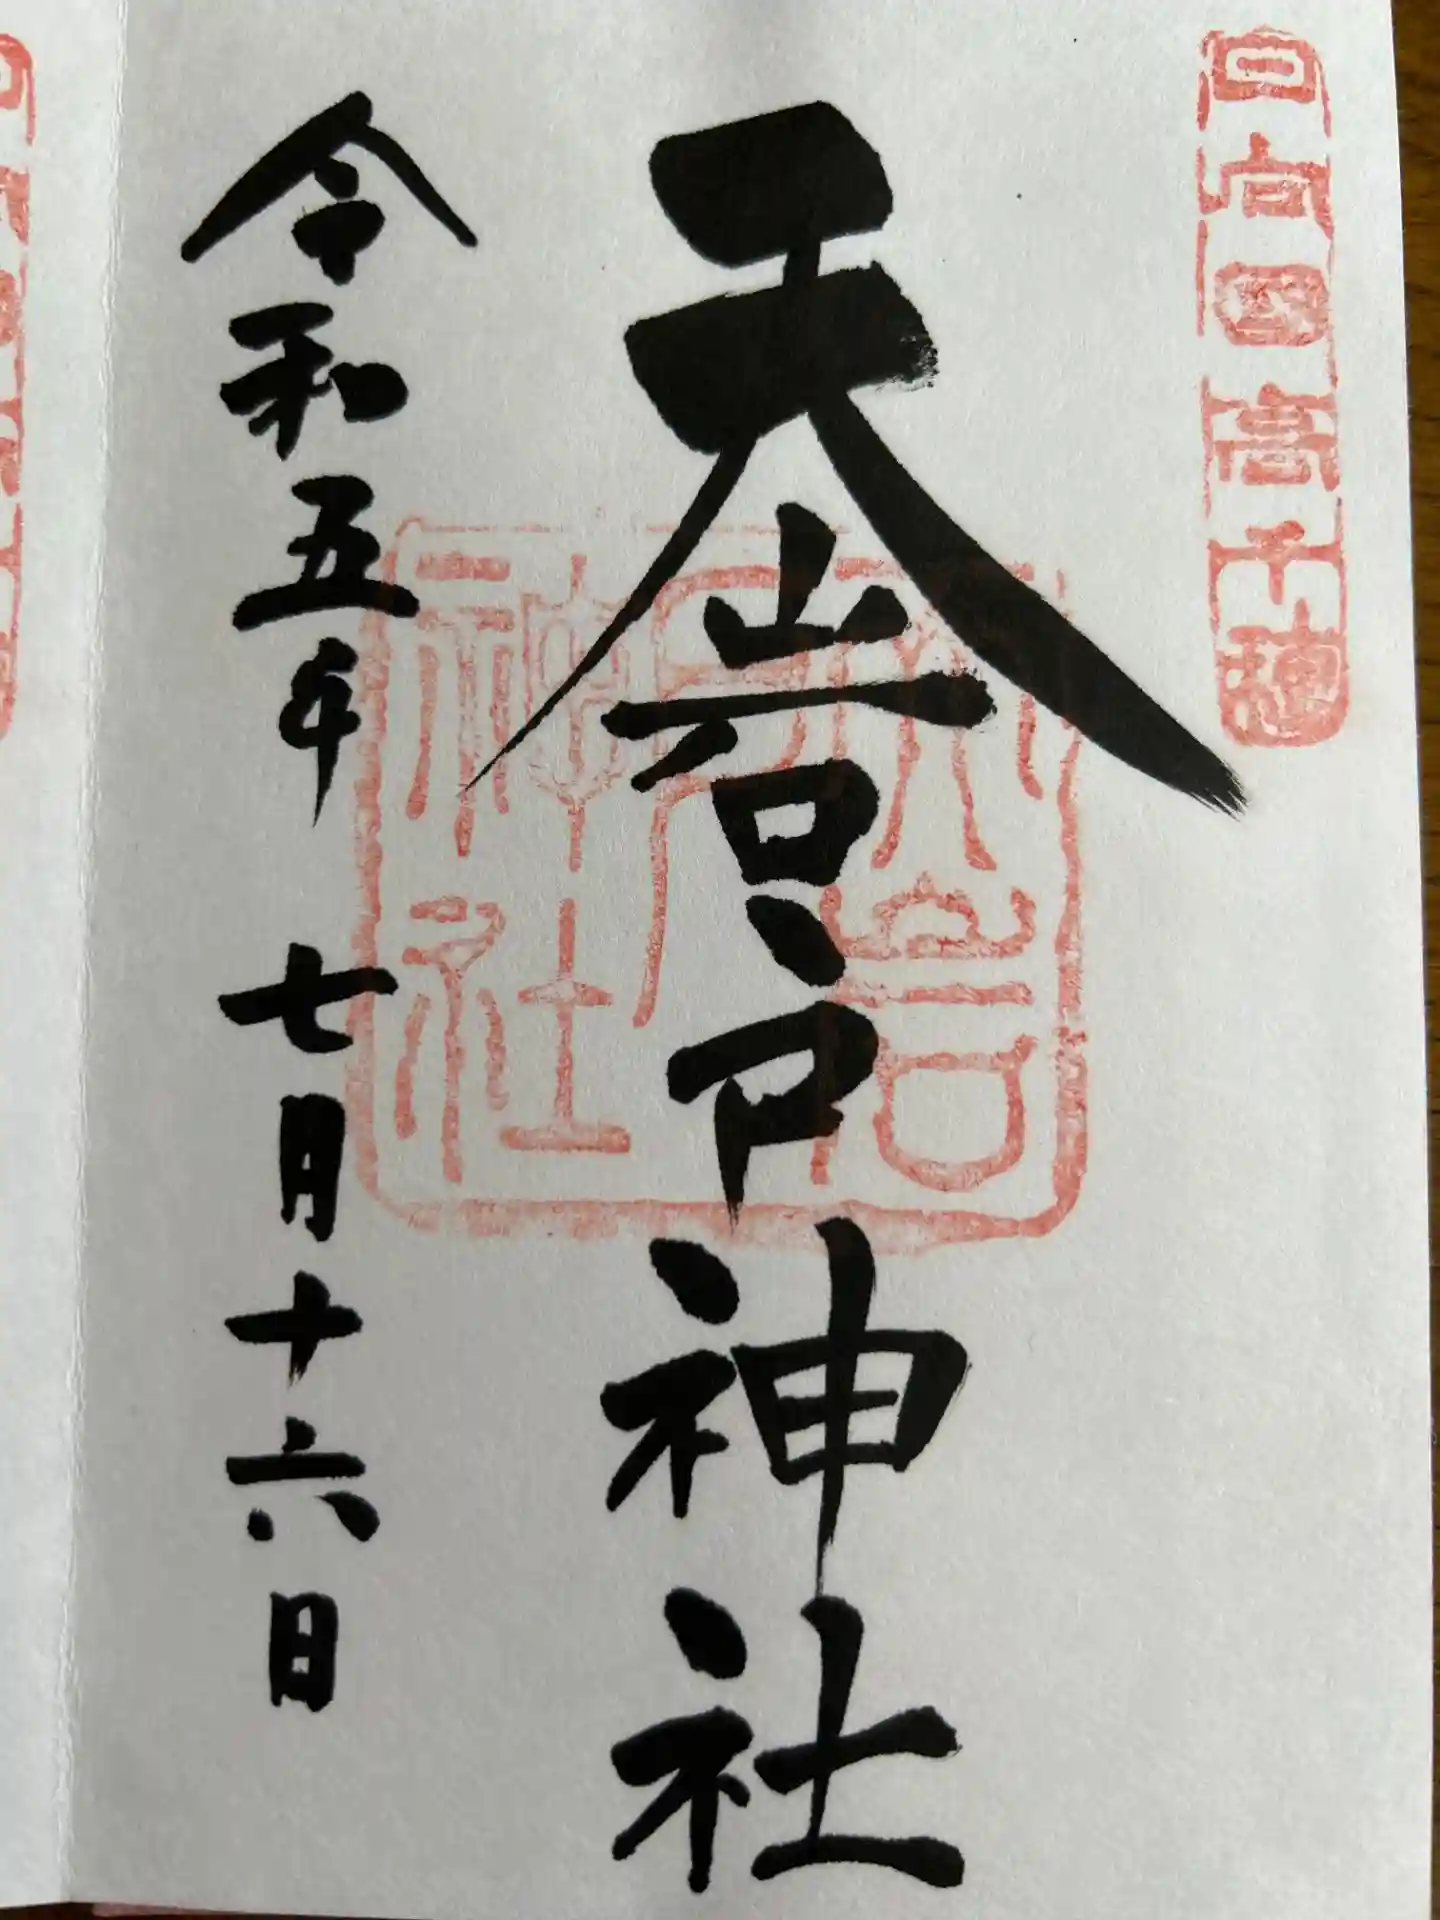 日向國高千穂
天岩戸神社
天岩戸
神社
令和五年 七月十六日